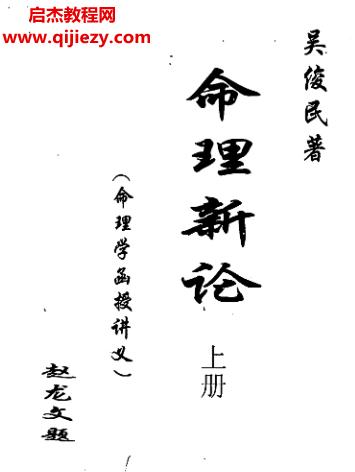 启杰教程网
www.qijiezy.com
吴俊民著
命理新论
上册
(命理学函授讲义)
赵龙文题